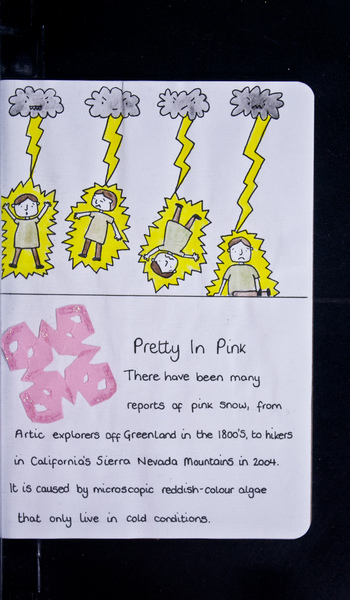 Pretty In Pink
There have been many
reports of pink snow, from
Artic explorers off Greenland in the 1800's, to hikers
in California's Sierra Nevada Mountains in 2004.
It is caused by microscopic reddish-colour algae
that only live in cold conditions.